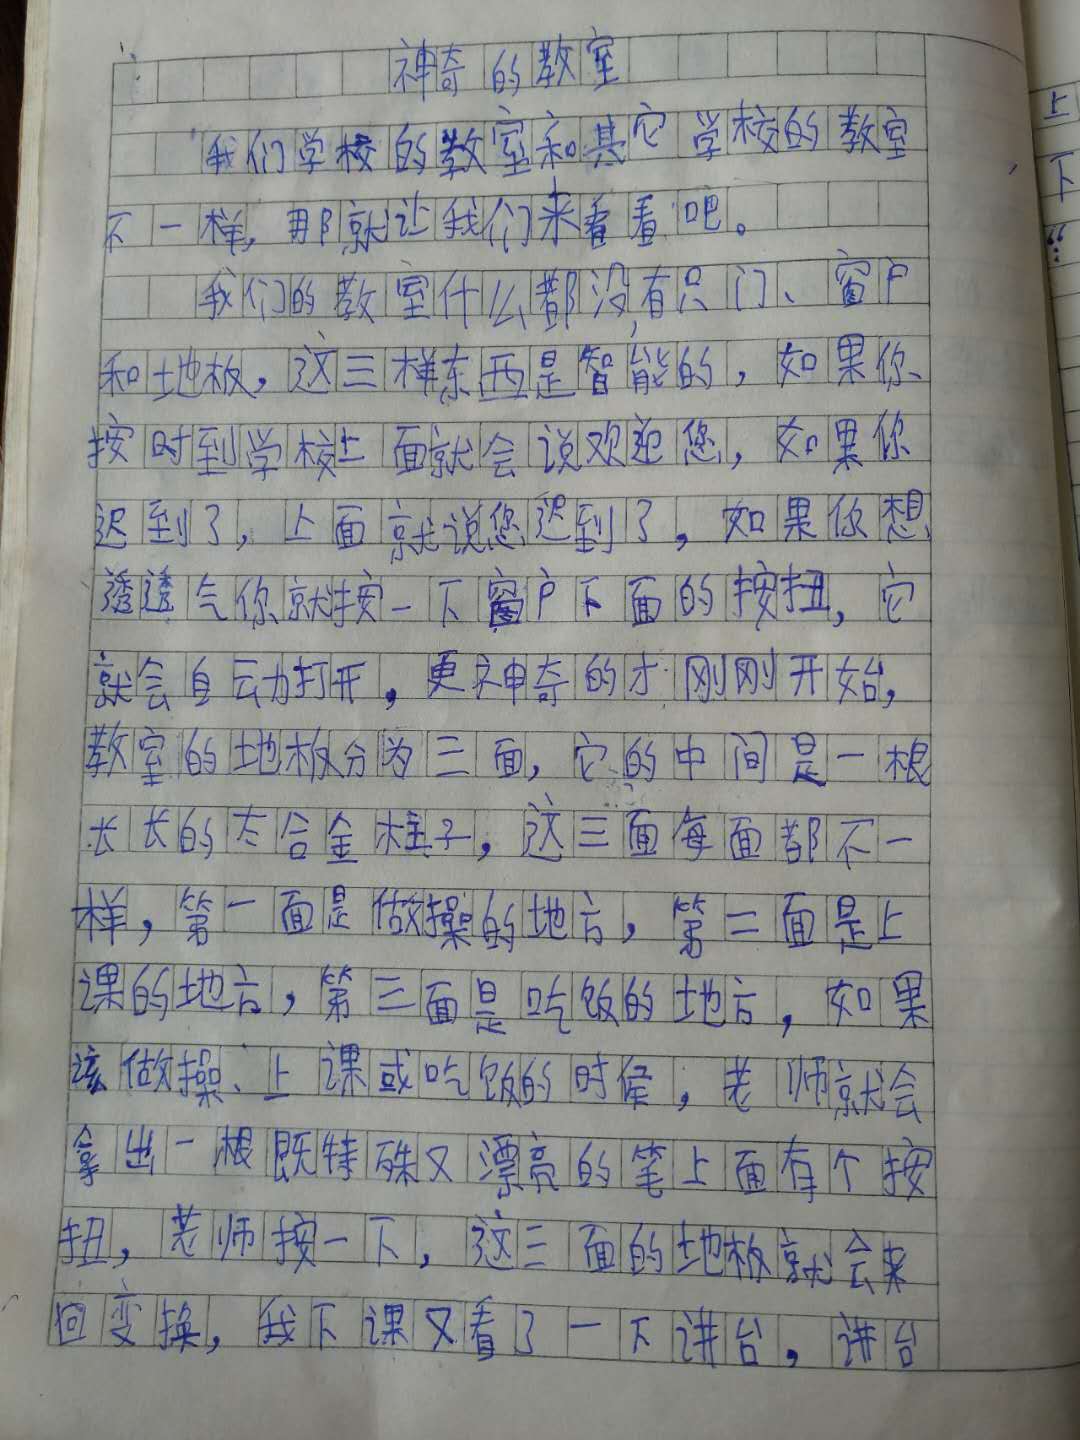 神奇的教室
我们学校的教室和其它学校的教室
不一样，那就让我们来看看吧。
我们的教室什么都没有只门、窗户
和地板，这三样东西是智能的，如果你
按时到学校上面就会说欢迎您，如果你
迟到了，上面就说您迟到了，如果你想
透透气你就按一下窗户下面的按扭，它
就会自动打开，更神奇的才刚刚开始，
教室的地板分为三面，它的中间是一根
长长的太合金柱子，这三面每面都不一
样，第一面是做操的地方，第二面是上
课的地方，第三面是吃饭的地方，如果
该做操、上课或吃饭的时侯，老师就会
拿出一根既特殊又漂亮的笔上面有个按
扭，老师按一下，这三面的地板就会来
回变换，我下课又看了一下讲台，讲台
上
下